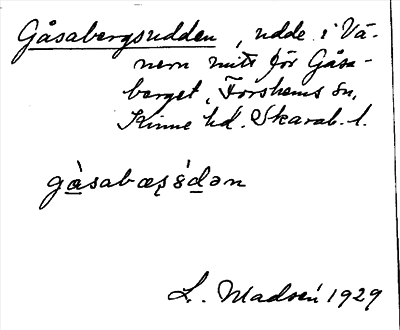 Gåsabergsudden, udde i Vä-
nern mitt för Gåsa-
berget, Forshems sn,
Kinne hd. Skarab. l.
gàsabæṣ́s̀dən
L. Madsén 1929